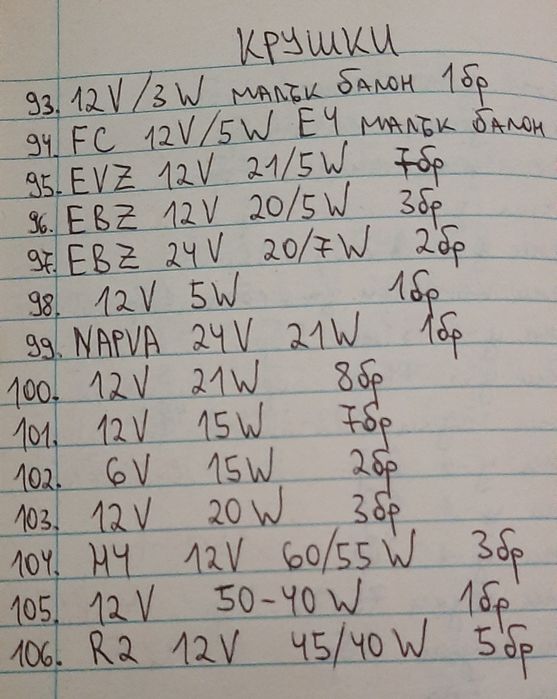 КРУШКИ
93. 12V/3W МАЛЪК БАЛОН 1бр
94. FC 12V/5W E4 МАЛЪК БАЛОН
95. EVZ 12V 21/5W 7бр
96. EBZ 12V 20/5W 3бр
97. EBZ 24V 20/7W 2бр
98. 12V 5W 1бр
99. NAPVA 24V 21W 1бр
100. 12V 21W 8бр
101. 12V 15W 7бр
102. 6V 15W 2бр
103. 12V 20W 3бр
104. H4 12V 60/55W 3бр
105. 12V 50-40W 1бр
106. R2 12V 45/40W 5бр